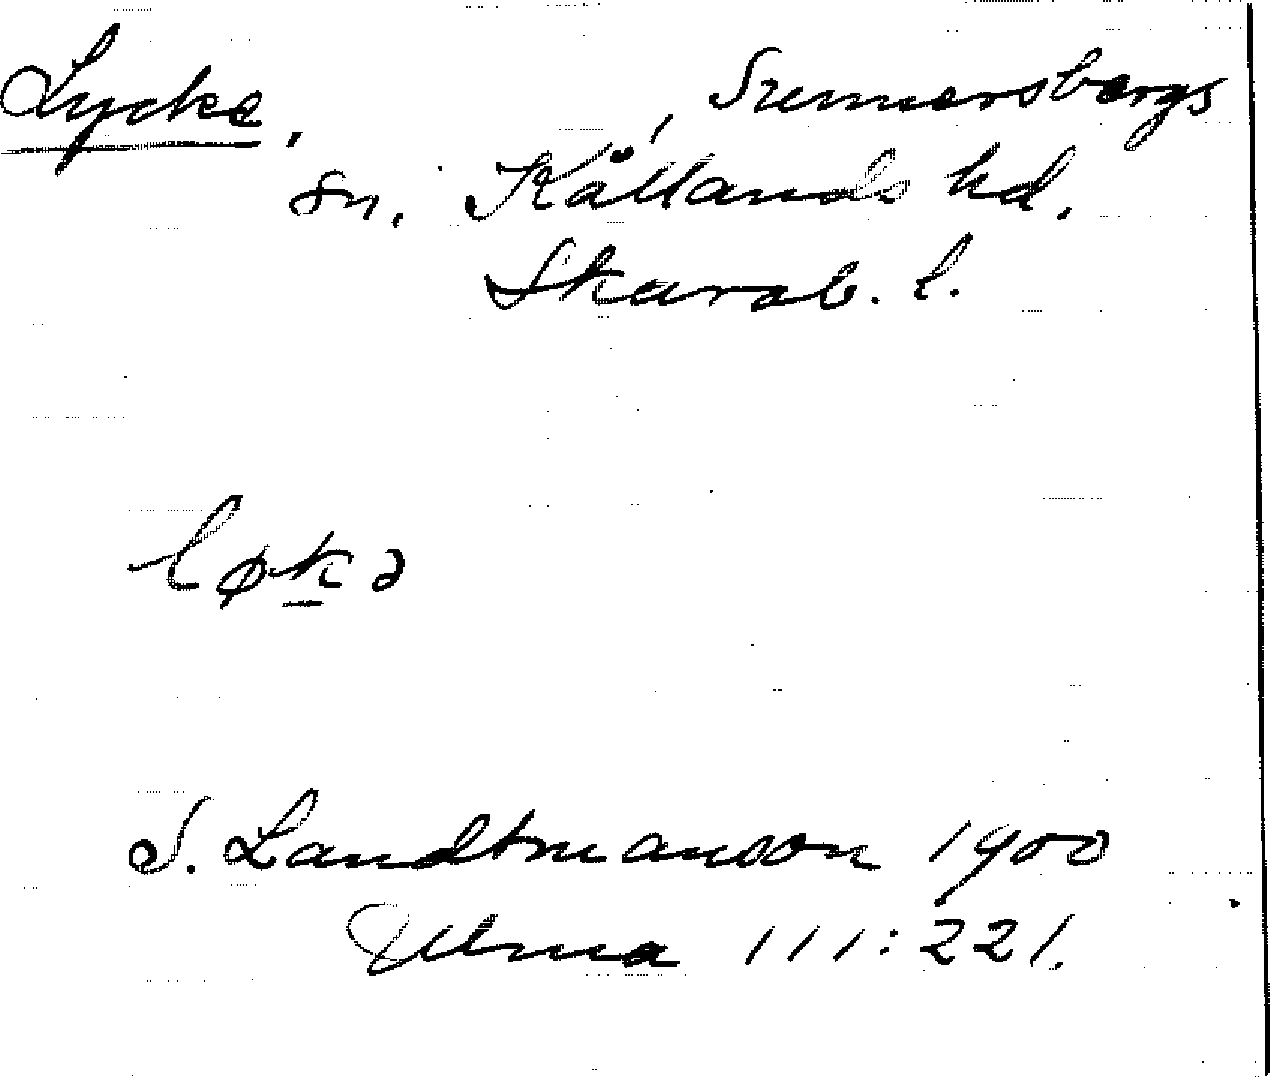 Lycke, Sunnersbergs
sn. Kållands hd.
Skarab. l.
løkə
S. Landtmanson 1900
Ulma 111:221.